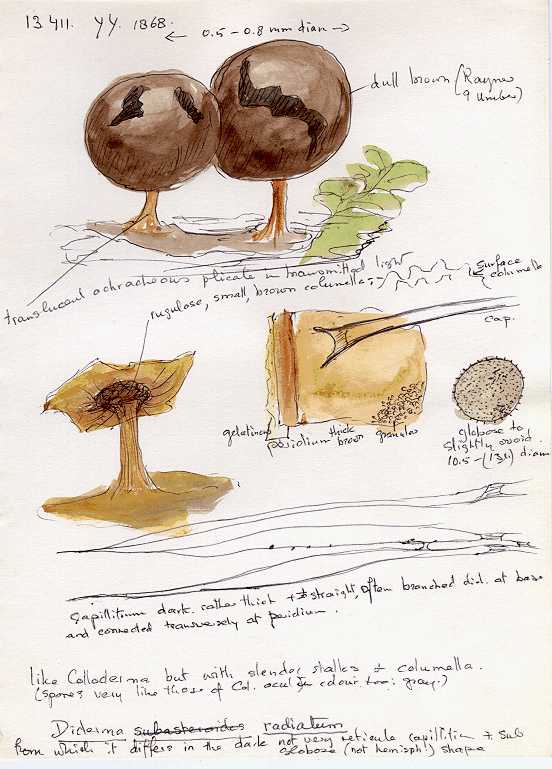 13411. YY. 1868.
← 0.5 – 0.8 mm diam →
dull brown (Rayner
9 Umber)
translucent ochraceous plicate in transmitted light
rugulose, small, brown columella
surface
columella
cap.
gelatinous peridium thick brown granular
globose to
slightly ovoid
10.5 – (13µ) diam
Capillitium dark. rather thick ± straight, often branched dist. at base
and connected transversely at peridium.
like Colloderma but with slender stalks + columella.
(spores very like those of Col. ocul. colour too: gray.)
Diderma subasteroides radiatum
from which it differs in the dark not very reticulate capillitium + sub
globose (not hemisph.) shape